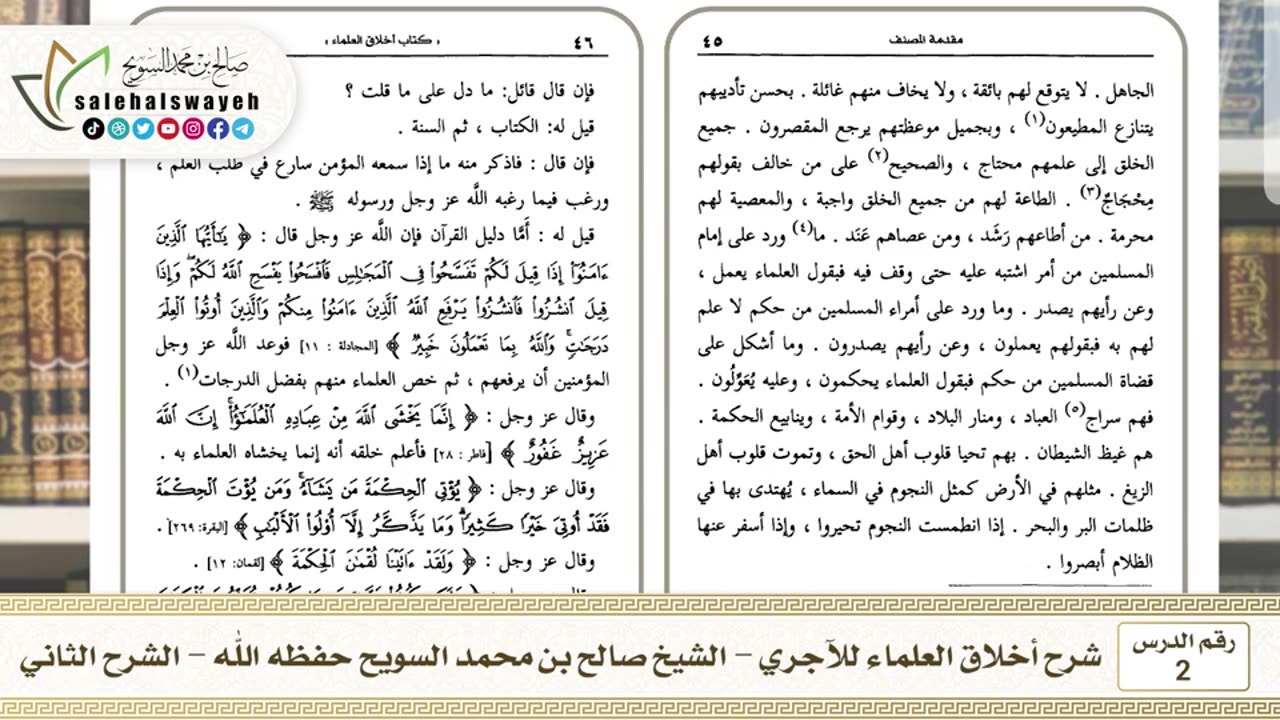 صالح بن محمد السويح
salehalswayeh
مقدمة المصنف
٤٥
الجاهل . لا يتوقع لهم بائقة ، ولا يخاف منهم غائلة . بحسن تأديبهم
يتنازع المطيعون(١) ، وبجميل موعظتهم يرجع المقصرون . جميع
الخلق إلى علمهم محتاج ، والصحيح(٢) على من خالف بقولهم
مِحْجَاجٌ(٣) . الطاعة لهم من جميع الخلق واجبة ، والمعصية لهم
محرمة . من أطاعهم رَشَد ، ومن عصاهم عَنَد . ما(٤) ورد على إمام
المسلمين من أمر اشتبه عليه حتى وقف فيه فبقول العلماء يعمل ،
وعن رأيهم يصدر . وما ورد على أمراء المسلمين من حكم لا علم
لهم به فبقولهم يعملون ، وعن رأيهم يصدرون . وما أشكل على
قضاة المسلمين من حكم فبقول العلماء يحكمون ، وعليه يُعَوِّلُون .
فهم سراج(٥) العباد ، ومنار البلاد ، وقوام الأمة ، وينابيع الحكمة .
هم غيظ الشيطان . بهم تحيا قلوب أهل الحق ، وتموت قلوب أهل
الزيغ . مثلهم في الأرض كمثل النجوم في السماء ، يُهتدى بها في
ظلمات البر والبحر . إذا انطمست النجوم تحيروا ، وإذا أسفر عنها
الظلام أبصروا .
٤٦
( كتاب أخلاق العلماء )
فإن قال قائل: ما دل على ما قلت ؟
قيل له: الكتاب ، ثم السنة .
فإن قال : فاذكر منه ما إذا سمعه المؤمن سارع في طلب العلم ،
ورغب فيما رغبه اللَّه عز وجل ورسوله ﷺ .
قيل له : أمَّا دليل القرآن فإن اللَّه عز وجل قال : ﴿ يَٰٓأَيُّهَا الَّذِينَ
ءَامَنُوٓا۟ إِذَا قِيلَ لَكُمْ تَفَسَّحُوا۟ فِى الْمَجَٰلِسِ فَافْسَحُوا۟ يَفْسَحِ اللَّهُ لَكُمْ ۖ وَإِذَا
قِيلَ انشُزُوا۟ فَانشُزُوا۟ يَرْفَعِ اللَّهُ الَّذِينَ ءَامَنُوا۟ مِنكُمْ وَالَّذِينَ أُوتُوا۟ الْعِلْمَ
دَرَجَٰتٍ ۚ وَاللَّهُ بِمَا تَعْمَلُونَ خَبِيرٌ ﴾ [المجادلة : ١١] فوعد اللَّه عز وجل
المؤمنين أن يرفعهم ، ثم خص العلماء منهم بفضل الدرجات(١) .
وقال عز وجل : ﴿ إِنَّمَا يَخْشَى اللَّهَ مِنْ عِبَادِهِ الْعُلَمَٰٓؤُا۟ ۗ إِنَّ اللَّهَ
عَزِيزٌ غَفُورٌ ﴾ [فاطر : ٢٨] فأعلم خلقه أنه إنما يخشاه العلماء به .
وقال عز وجل : ﴿ يُؤْتِى الْحِكْمَةَ مَن يَشَآءُ ۚ وَمَن يُؤْتَ الْحِكْمَةَ
فَقَدْ أُوتِىَ خَيْرًا كَثِيرًا ۗ وَمَا يَذَّكَّرُ إِلَّآ أُو۟لُوا۟ الْأَلْبَٰبِ ﴾ [البقرة: ٢٦٩] .
وقال عز وجل : ﴿ وَلَقَدْ ءَاتَيْنَا لُقْمَٰنَ الْحِكْمَةَ ﴾ [لقمان: ١٢] .
رقم الدرس
2
شرح أخلاق العلماء للآجري – الشيخ صالح بن محمد السويح حفظه الله – الشرح الثاني